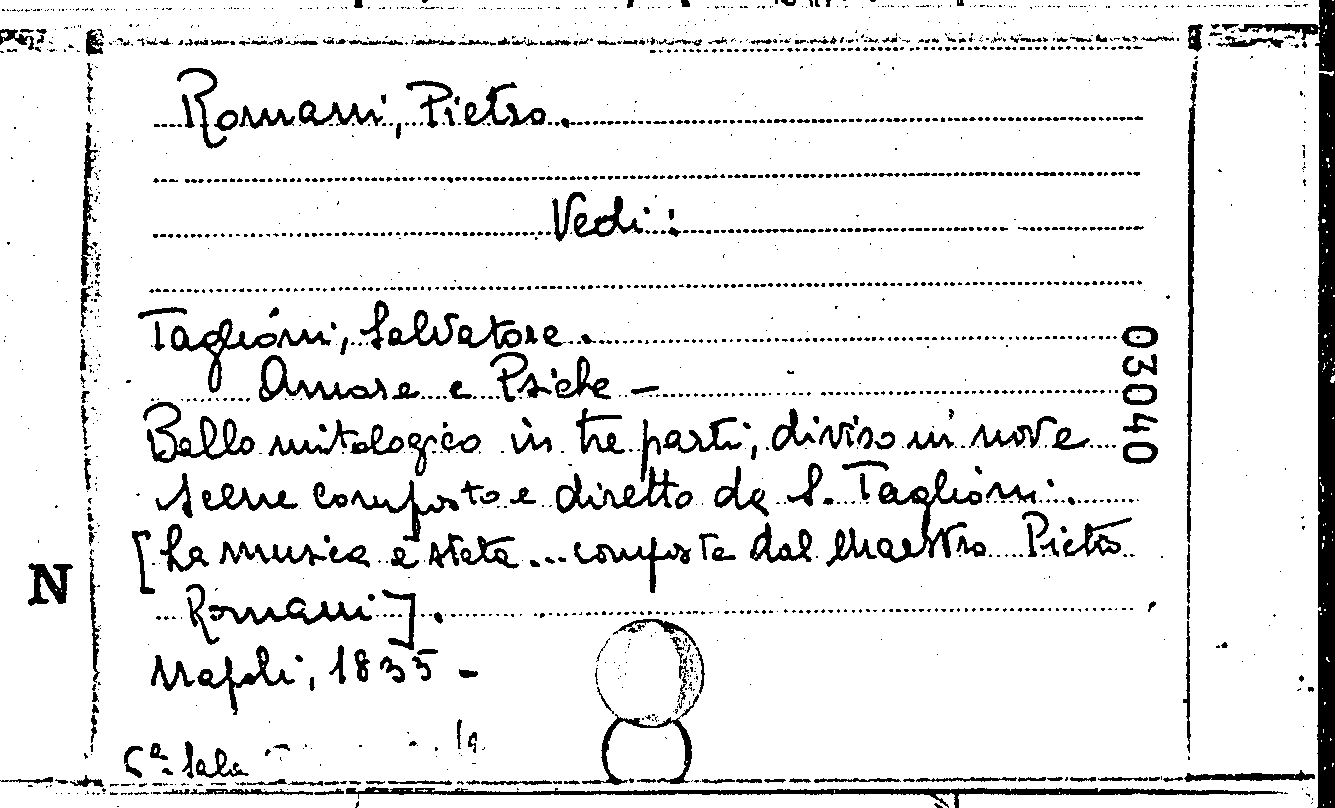 Romani, Pietro.
Vedi:
Taglioni, Salvatore.
Amore e Psiche -
Ballo mitologico in tre parti, diviso in nove
scene composto e diretto da S. Taglioni.
[La musica è stata... composta dal Maestro Pietro
Romani].
Napoli, 1835 -
6ª Sala
03040
N